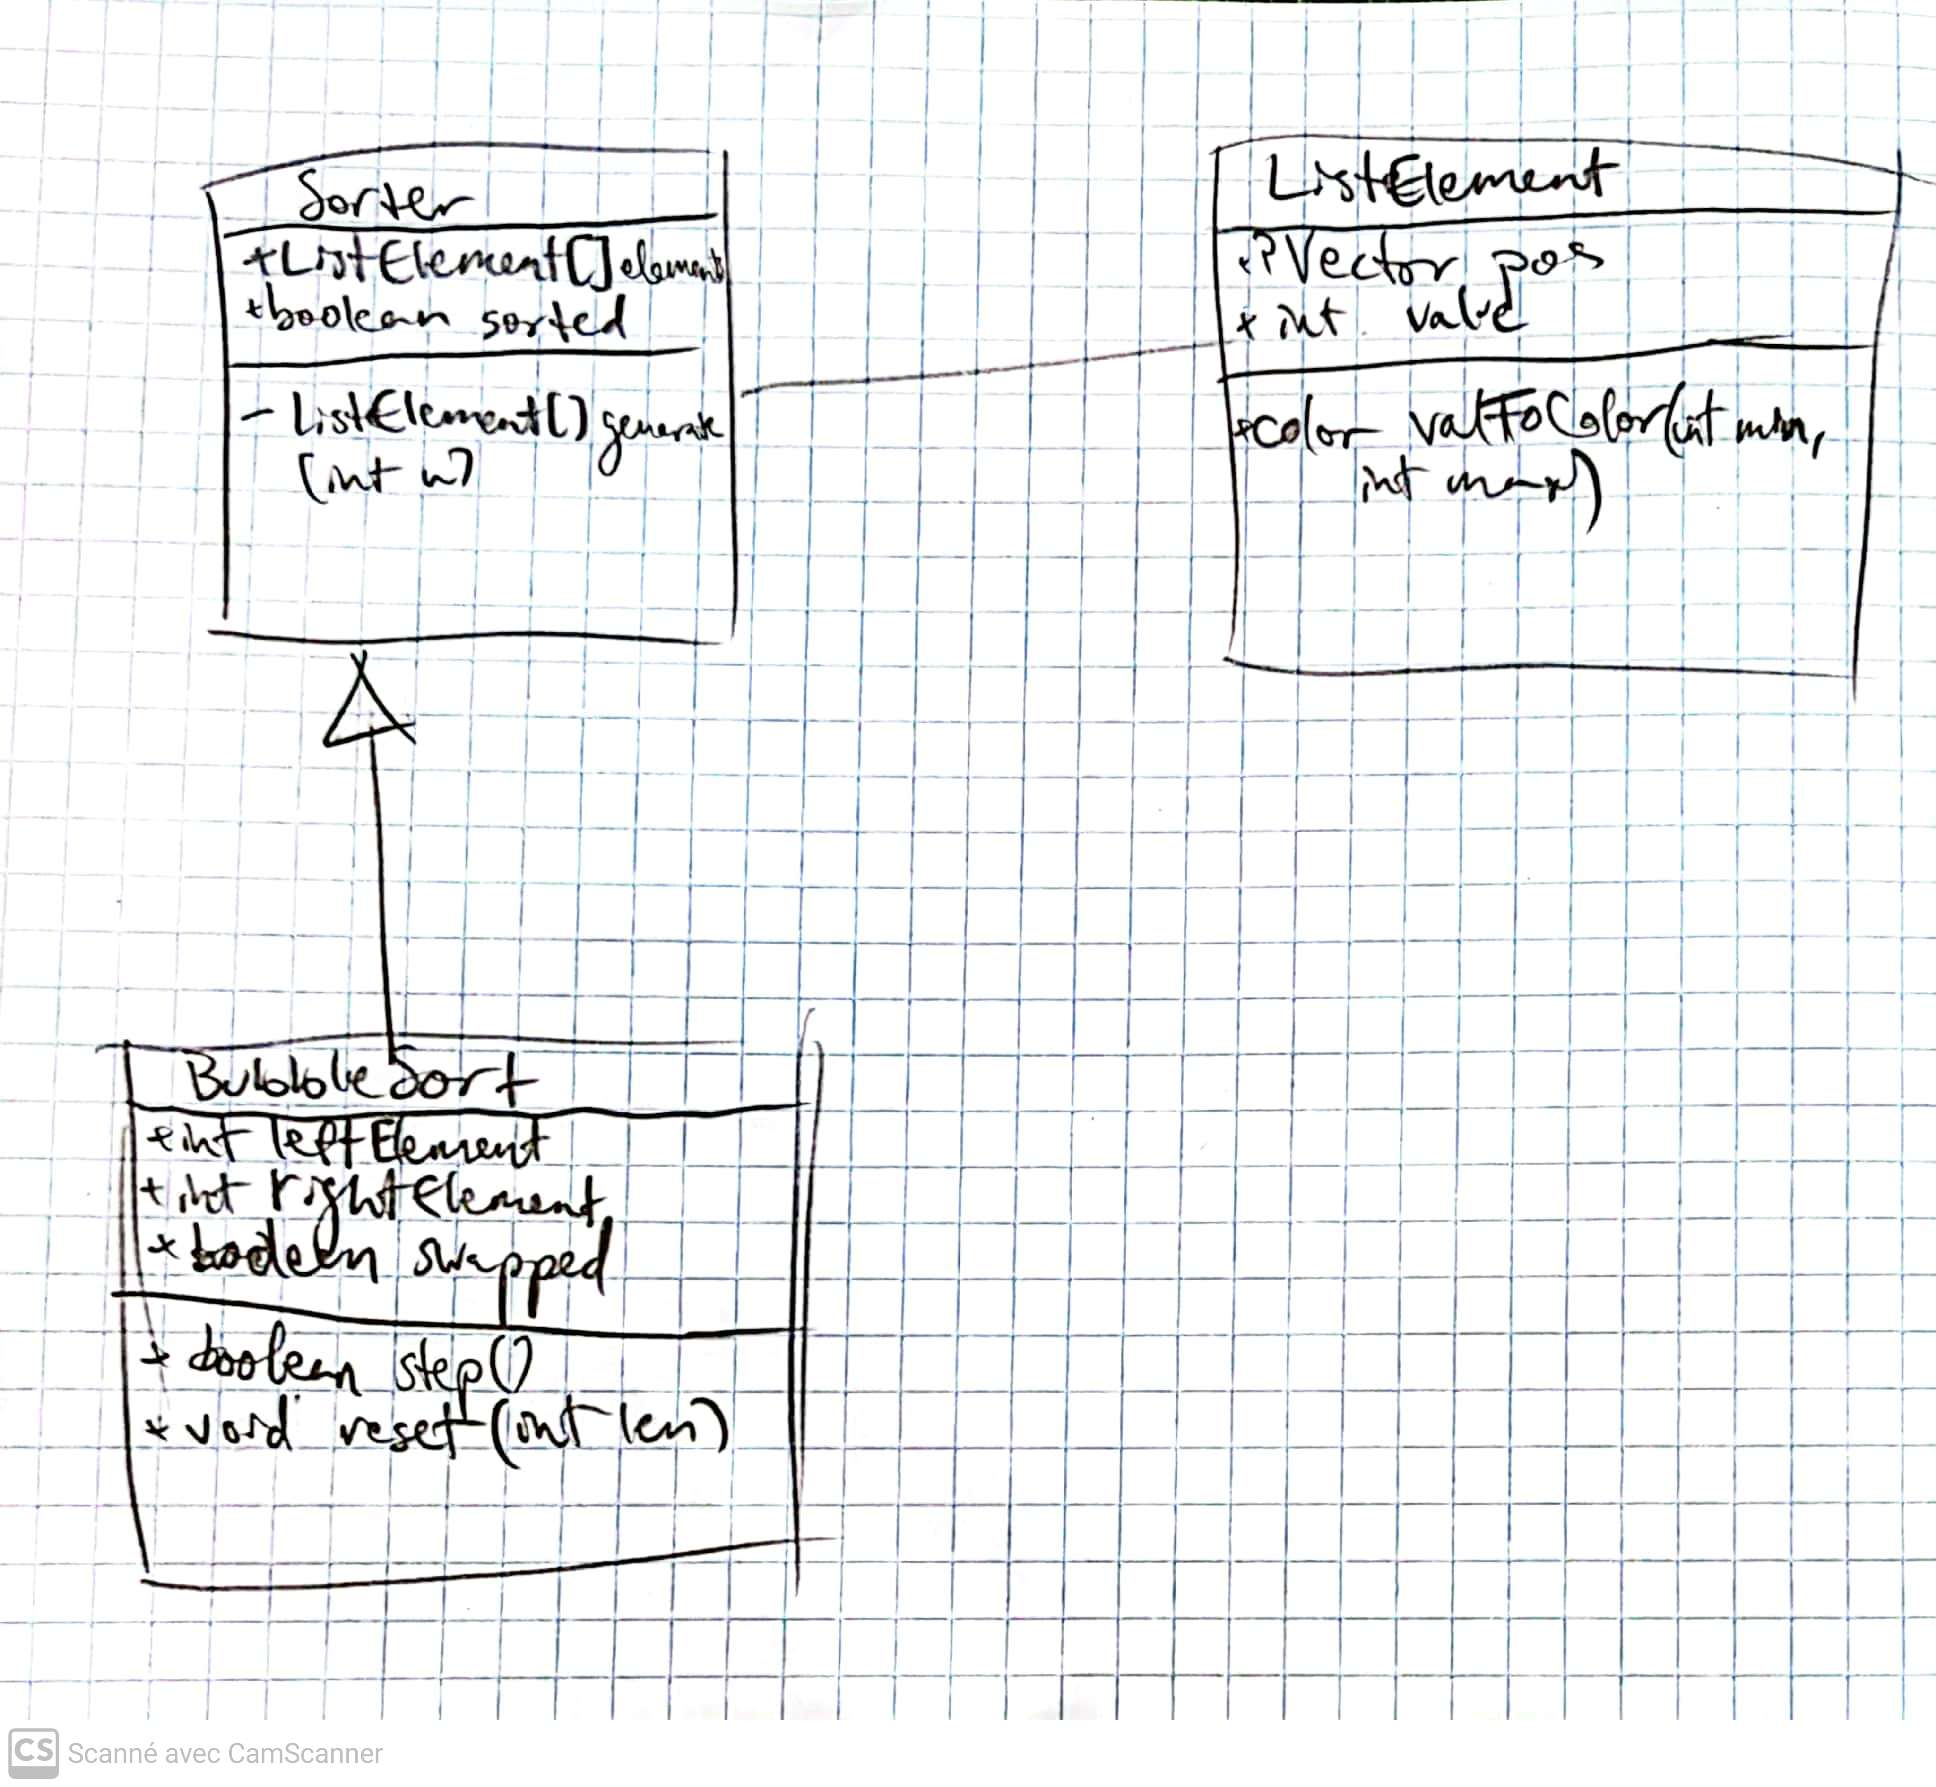 Sorter
+ListElement[] element
+boolean sorted
- ListElement[] generate
(int n)
ListElement
+PVector pos
+ int value
+color valToColor(int min,
int max)
BubbleSort
+int leftElement
+ int rightElement
+ boolean swapped
+ boolean step()
+ void reset(int len)
CS Scanné avec CamScanner